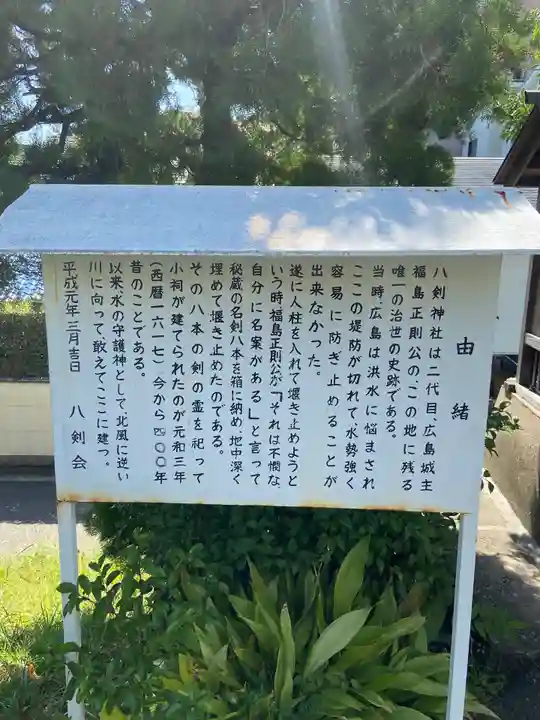 由緒
八剣神社は二代目、広島城主
福島正則公の、この地に残る
唯一の治世の史跡である。
当時、広島は洪水に悩まされ
ここの堤防が切れて、水勢強く
容易に防ぎ止めることが
出来なかった。
遂に人柱を入れて堰き止めようと
いう時福島正則公が「それは不憫な、
自分に名案がある」と言って
秘蔵の名剣八本を箱に納め、地中深く
埋めて堰き止めたのである。
その八本の剣の霊を祀って
小祠が建てられたのが元和三年
(西暦一六一七)今から四〇〇年
昔のことである。
以来、水の守護神として、北風に逆い
川に向って敢えてここに建つ。
平成元年三月吉日 八剣会